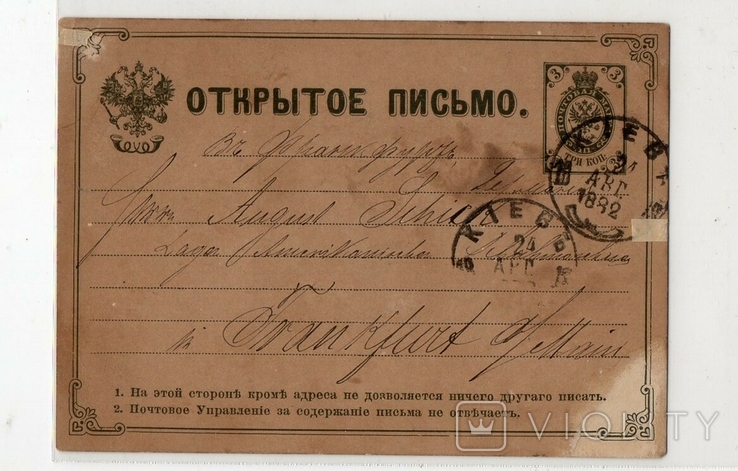 3 3
ПОЧТОВАЯ МАРКА
ТРИ КОП.
ОТКРЫТОЕ ПИСЬМО.
Въ Франкфуртъ
КІЕВЪ
24
АВГ
1882
Herrn August
КІЕВЪ
24
АВГ
Lager Amerikanischer
in Frankfurt a/Main
1. На этой сторонѣ кромѣ адреса не дозволяется ничего другаго писать.
2. Почтовое Управленіе за содержаніе письма не отвѣчаетъ.
VIOLITY